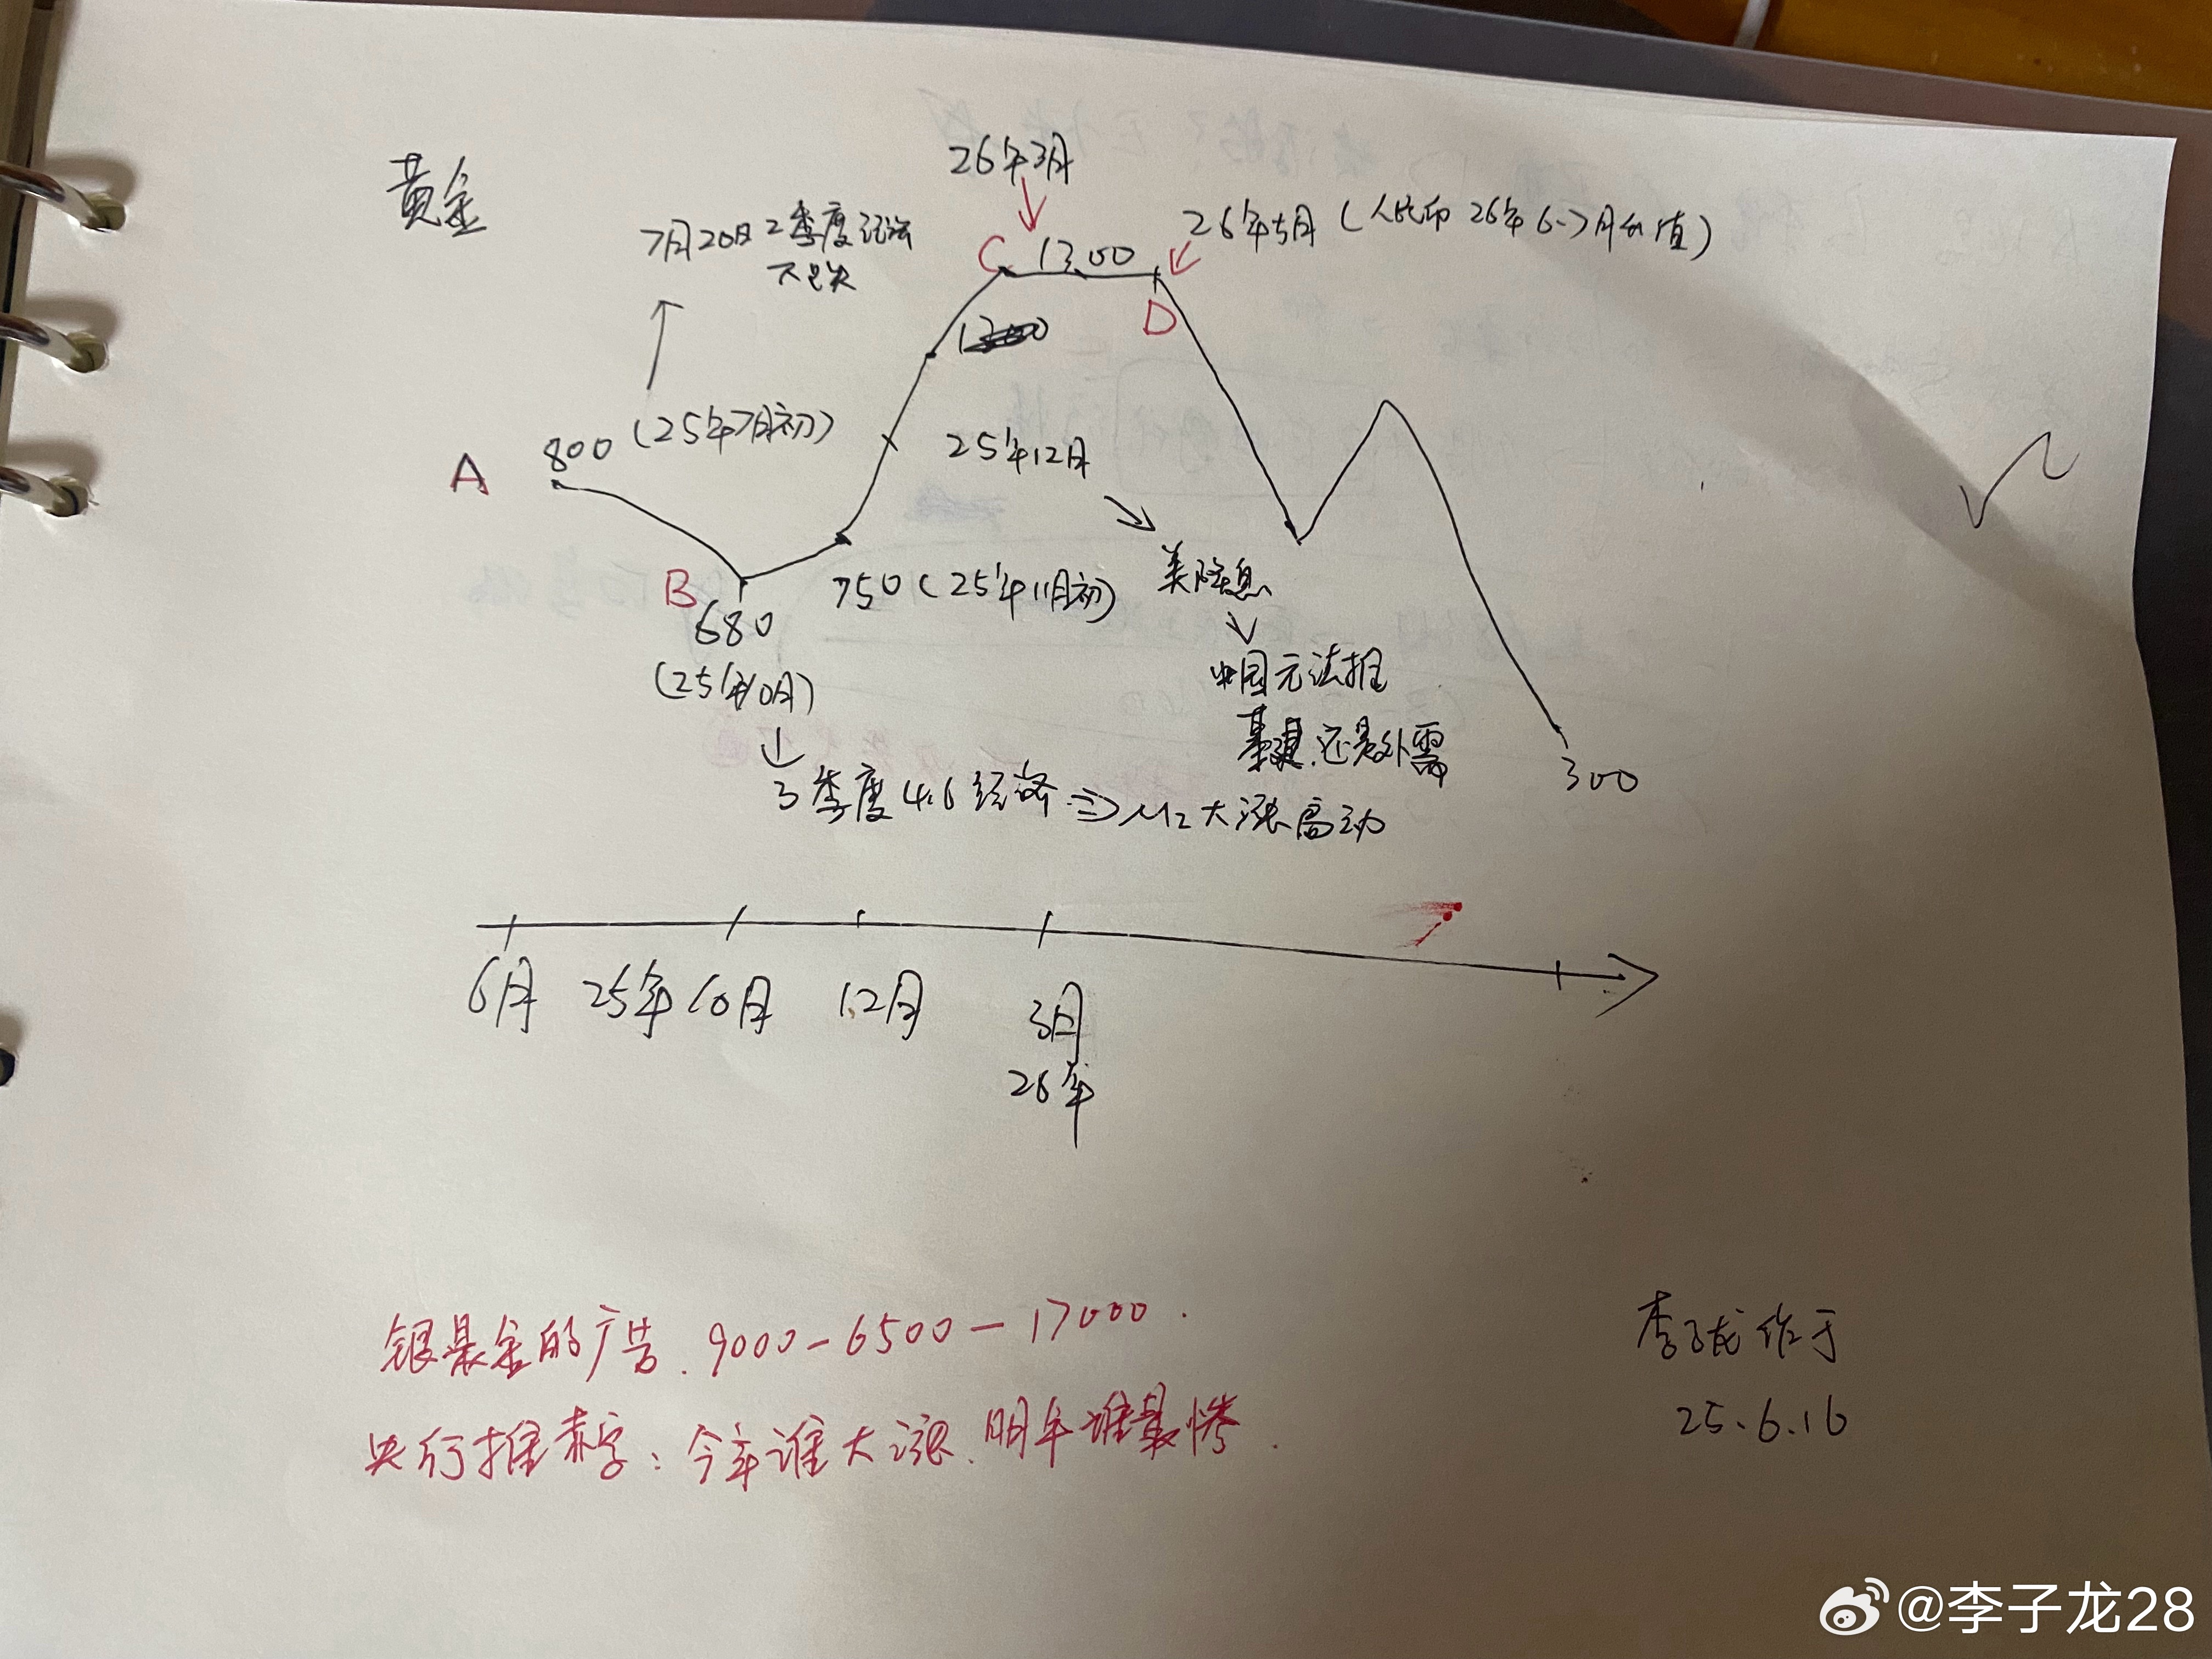 黄金
26年3月
7月20日2季度经济
不已失
C 1300
26年5月(人民币26年6-7月升值)
D
800(25年7月初)
A
25年12月
B
680
(25年10月)
750(25年11月初)
美降息
中国无法推
基建.还是外需
3季度4.6经济⇒M2大涨高动
300
6月 25年10月 12月 3月
26年
银是金的广告.9000-6500-17000.
央行推赤字:今年谁大涨.明年谁最惨.
李子龙作于
25.6.16
@李子龙28